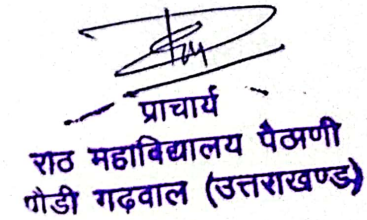 प्राचार्य
राठ महाविद्यालय पैठाणी
पौडी गढवाल (उत्तराखण्ड)